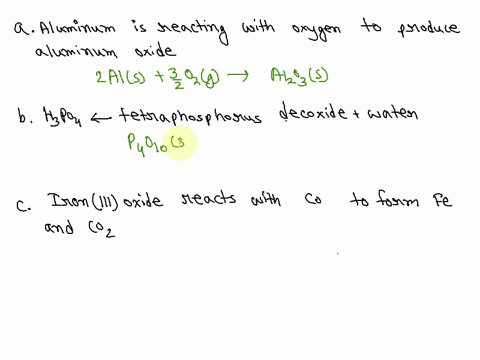 a. Aluminum is reacting with oxygen to produce
aluminum oxide
2Al(s) + 3/2 O₂(g) → Al₂O₃(s)
b. H₃PO₄ ← tetraphosphorus decoxide + water
P₄O₁₀ (s
c. Iron (III) oxide reacts with Co to form Fe
and CO₂